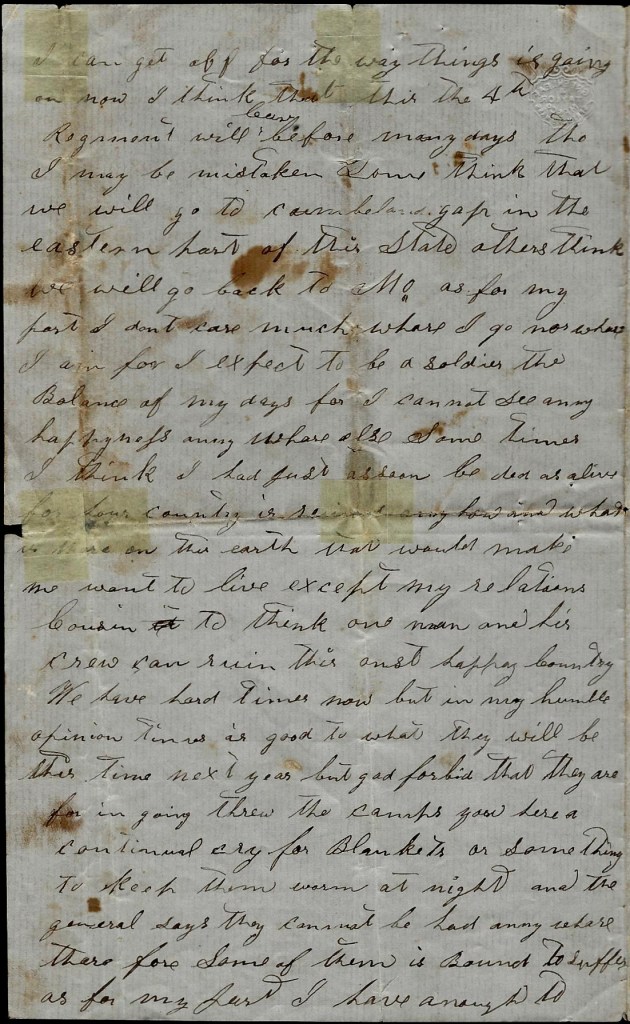 I can get off for the way things is going
on now I think that this the 4th
leave
Regment will before many days tho
I may be mistaken Some think that
we will go to cumbeland gap in the
eastern part of this State others think
we will go back to Mo as for my
part I dont care much whare I go nor whare
I am for I expect to be a soldier the
Balance of my days for I cannot see anny
happyness anny whare else Some times
I think I had just as soon be ded as alive
for our country is anny how and what
is thare on this earth that would make
me want to live except my relations
Cousin to think one man and his
crew can ruin this onst happy Country
We have hard times now but in my humble
opinion times is good to what they will be
this time next year but god forbid that they are
for in going threw the camps you here a
continual cry for Blankets or something
to keep them warm at night and the
general says they cannot be had anny whare
thare fore Some of them is Bound to suffer
as for my part I have anough to